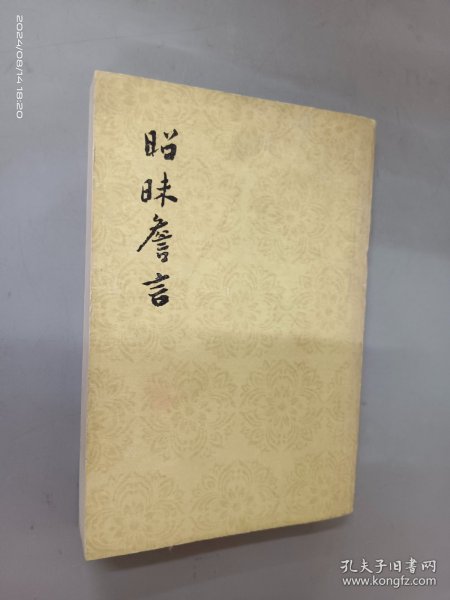 2024/08/14 18:20
昭昧詹言
孔夫子旧书网
www.kongfz.com